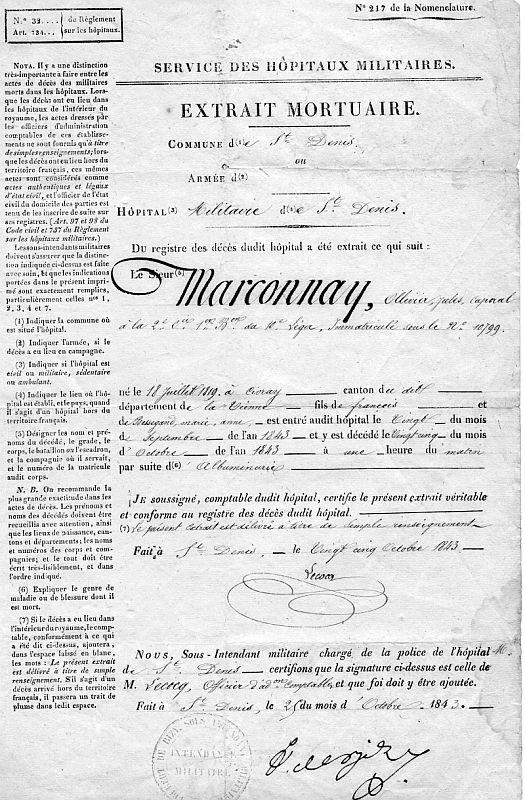 N.º 32.... du Réglement
Art. 734... sur les hôpitaux.
Nº 217 de la Nomenclature.
NOTA. Il y a une distinction
très-importante à faire entre les
actes de décès des militaires
morts dans les hôpitaux. Lors-
que les décès ont eu lieu dans
les hôpitaux de l'intérieur du
royaume, les actes dressés par
les officiers d'administration
comptables de ces établisse-
ments ne sont fournis qu'à titre
de simples renseignements; lors-
que les décès ont eu lieu hors du
territoire français, ces mêmes
actes sont considérés comme
actes authentiques et légaux
d'état civil, et l'officier de l'état
civil du domicile des parties est
tenu de les inscrire de suite sur
ses registres. (Art. 97 et 98 du
Code civil et 737 du Réglement
sur les hôpitaux militaires.)
Les sous-intendants militaires
doivent s'assurer que la distinc-
tion indiquée ci-dessus est faite
avec soin, et que les indications
portées dans le présent imprimé
sont exactement remplies,
particulièrement celles nos 1,
2, 3, 4 et 7.
(1) Indiquer la commune où
est situé l'hôpital.
(2) Indiquer l'armée, si le
décès a eu lieu en campagne.
(3) Indiquer si l'hôpital est
civil ou militaire, sédentaire
ou ambulant.
(4) Indiquer le lieu où l'hô-
pital est établi, et le pays, quand
il s'agit d'un hôpital hors du
territoire français.
(5) Désigner les nom et pré-
noms du décédé, le grade, le
corps, le bataillon ou l'escadron,
et la compagnie où il servait,
et le numéro de la matricule
audit corps.
N. B. On recommande la
plus grande exactitude dans les
actes de décès. Les prénoms et
noms des décédés doivent être
recueillis avec attention, ainsi
que les lieux de naissance, can-
tons et départements; les noms
et numéros des corps et com-
pagnies; et le tout doit être
écrit très-lisiblement, et dans
l'ordre indiqué.
(6) Expliquer le genre de
maladie ou de blessure dont il
est mort.
(7) Si le décès a eu lieu dans
l'intérieur du royaume, le comp-
table, conformément à ce qui
a été dit ci-dessus, ajoutera,
dans l'espace laissé en blanc,
les mots: Le présent extrait
est délivré à titre de simple
renseignement. S'il s'agit d'un
décès arrivé hors du territoire
français, il passera un trait de
plume dans ledit espace.
SERVICE DES HÔPITAUX MILITAIRES.
EXTRAIT MORTUAIRE.
COMMUNE d(1)e St Denis
ou
ARMÉE d(2)
HÔPITAL(3) Militaire d(4)e St Denis.
Du registre des décès dudit hôpital a été extrait ce qui suit:
Le Sieur(5) Marconnay, Ollivier, jules, caporal
à la 2e Cie 1er Bon du 10e Léger, Immatriculé sous le No 10,99.
né le 18 juillet 1819 à Civray canton du dit
département de la Vienne fils de francois et
de marie, anne, est entré audit hôpital le Vingt du mois
de Septembre de l'an 1843 et y est décédé le Vingt cinq du mois
d'Octobre de l'an 1843 à une heure du matin
par suite d(6) Albuminurie
JE soussigné, comptable dudit hôpital, certifie le présent extrait véritable
et conforme au registre des décès dudit hôpital.
(7) Le présent extrait est délivré à titre de simple renseignement
Fait à St Denis, le Vingt cinq Octobre 1843.
Lecocq
NOUS, Sous-Intendant militaire chargé de la police de l'hôpital M.
de St Denis certifions que la signature ci-dessus est celle de
M. Lecocq, Officier d'adon Comptable, et que foi doit y être ajoutée.
Fait à St Denis, le 25 du mois d'Octobre 1843.
INTENDANCE
MILITAIRE